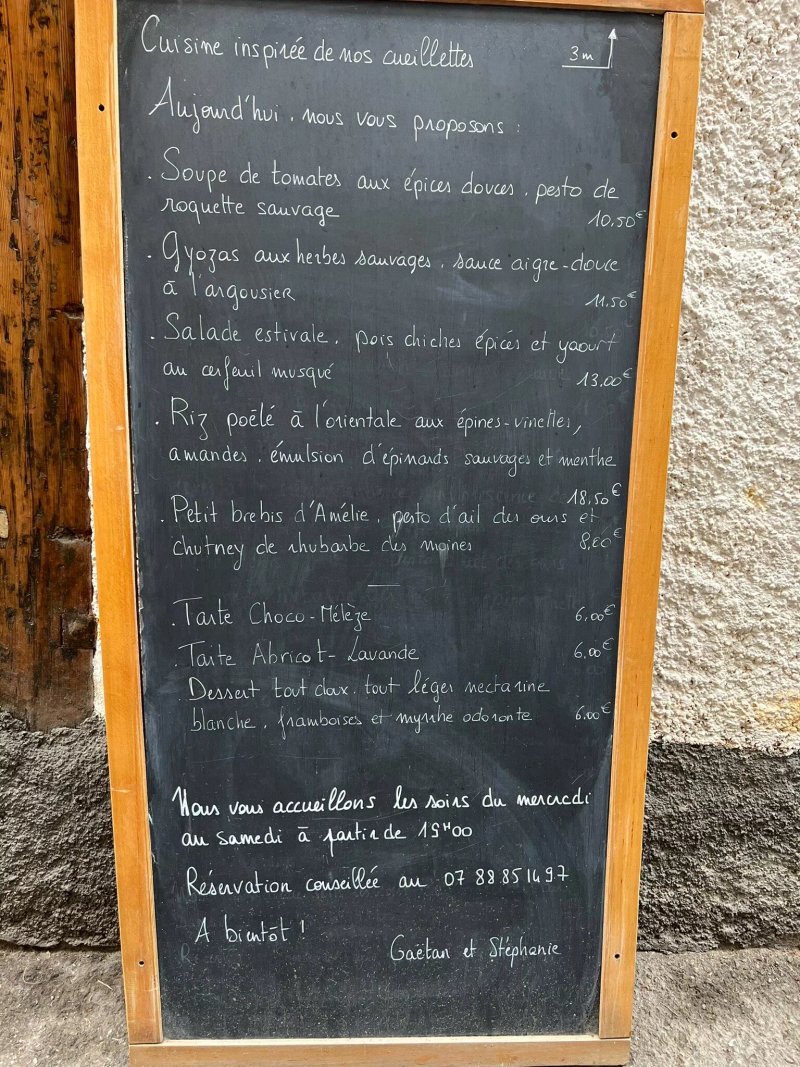 Cuisine inspirée de nos cueillettes
3m
Aujourd'hui, nous vous proposons :
. Soupe de tomates aux épices douces, pesto de
roquette sauvage 10,50€
. Gyozas aux herbes sauvages, sauce aigre-douce
à l'argousier 11,50€
. Salade estivale, pois chiches épicés et yaourt
au cerfeuil musqué 13,00€
. Riz poêlé à l'orientale aux épines-vinettes,
amandes, émulsion d'épinards sauvages et menthe
18,50€
. Petit brebis d'Amélie, pesto d'ail des ours et
chutney de rhubarbe des moines 8,00€
. Tarte Choco-Mélèze 6,00€
. Tarte Abricot-Lavande 6,00€
. Dessert tout doux, tout léger nectarine
blanche, framboises et myrrhe odorante 6,00€
Nous vous accueillons les soirs du mercredi
au samedi à partir de 19H00
Réservation conseillée au 07 88 85 14 97
A bientôt !
Gaëtan et Stéphanie